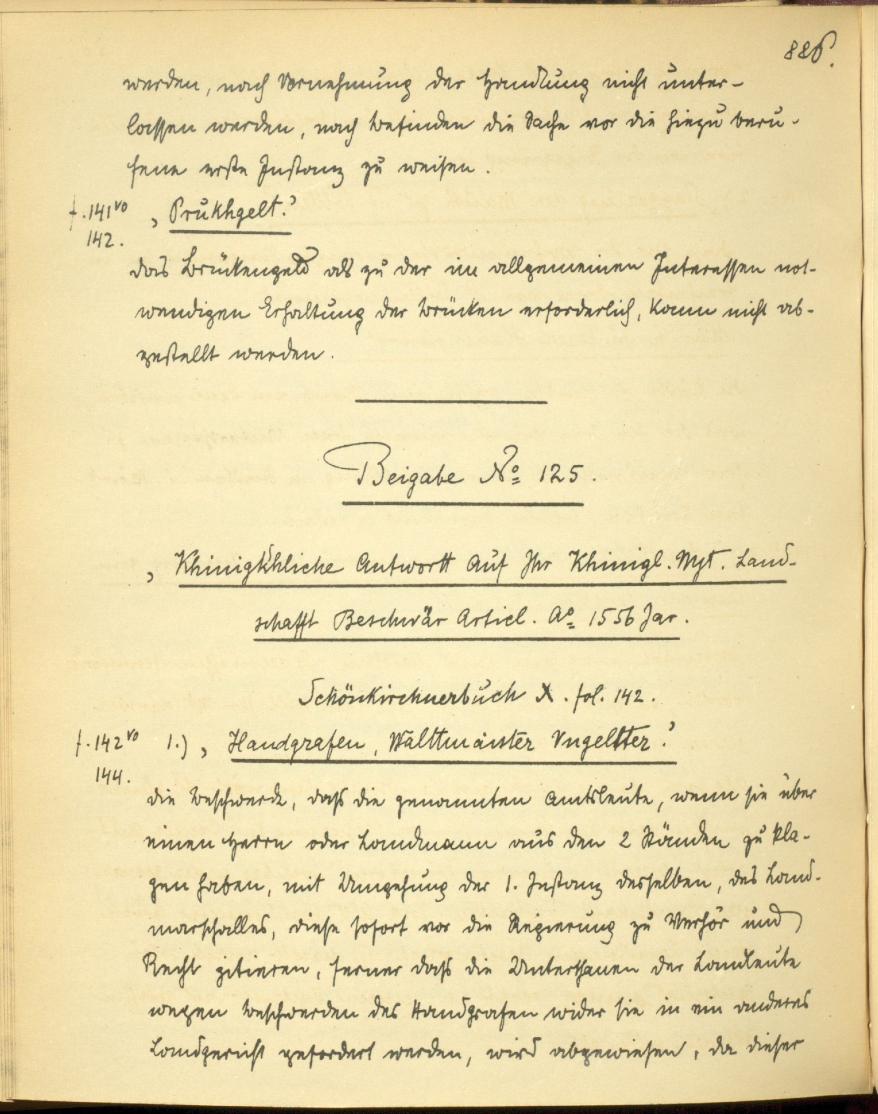 886.
werden, nach Vornehmung der Handlung nicht unter-
lassen werden, nach Befinden die Sache vor die hiezu beru-
fene erste Instanz zu weisen.
f. 141vo „Prukhgelt.“
142.
das Brükengeld als zu der im allgemeinen Interessen not-
wendigen Erhaltung der Brücken erforderlich, kann nicht ab-
gestellt werden.
Beigabe No 125.
„Khinigkhliche Antwortt auf Ihr Khinigl. Myt. Land-
schafft Beschwär Articl. Ao 1556 Jar.
Schönkirchnerbuch X. fol. 142.
f. 142vo 1.) „Handgrafen, Walttmaister Vngeltter.“
144.
die Beschwerde, daß die genannten Amtsleute, wenn sie über
einen Herrn oder Landmann aus den 2 Ständen zu kla-
gen haben, mit Umgehung der 1. Instanz desselben, des Land-
marschalles, diese sofort vor die Regierung zu Verhör und
Recht zitieren, ferner daß die Unterthanen der Landleute
wegen Beschwerden des Handgrafen wider sie in ein anderes
Landgericht gefordert werden, wird abgewiesen, da dieser